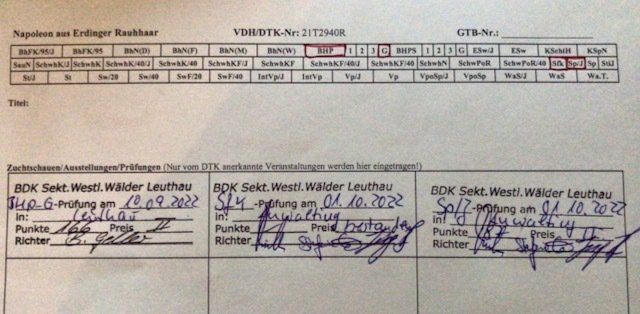 Napoleon aus Erdinger Rauhhaar VDH/DTK-Nr: 21T2940R GTB-Nr.:
BhFK/95/J BhFK/95 BhN(D) BhN(F) BhN(M) BhN(W) BHP 1 2 3 G BHPS 1 2 3 G ESw/J ESw KSchlH KSpN
SauN SchwhK/J SchwhK SchwhK/40/J SchwhK/40 SchwhKF SchwhKF/40/J SchwhKF/40 SchwhN SchwPoR SchwPoR/40 Sfk Sp/J Sp StiJ
St/J St Sw/20 Sw/40 SwF/20 SwF/40 IntVp/J IntVp Vp/J Vp VpoSp/J VpoSp WaS/J WaS Wa.T.
Titel:
Zuchtschauen/Ausstellungen/Prüfungen (Nur vom DTK anerkannte Veranstaltungen werden hier eingetragen!)
BDK Sekt.Westl.Wälder Leuthau
BHP-G-Prüfung am 10.09.2022
in: Leuthau
Punkte 166 Preis II
Richter
BDK Sekt.Westl.Wälder Leuthau
-Prüfung am 01.10.2022
in: Anwalting
Punkte Preis bestanden
Richter
BDK Sekt.Westl.Wälder Leuthau
Sp/J -Prüfung am 01.10.2022
in: Anwalting
Punkte 87 Preis II
Richter